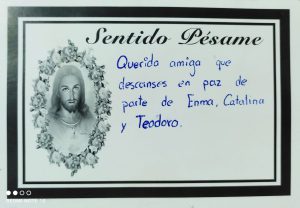 Sentido Pésame
Querida amiga que
descanses en paz de
parte de Enma, Catalina
y Teodoro.